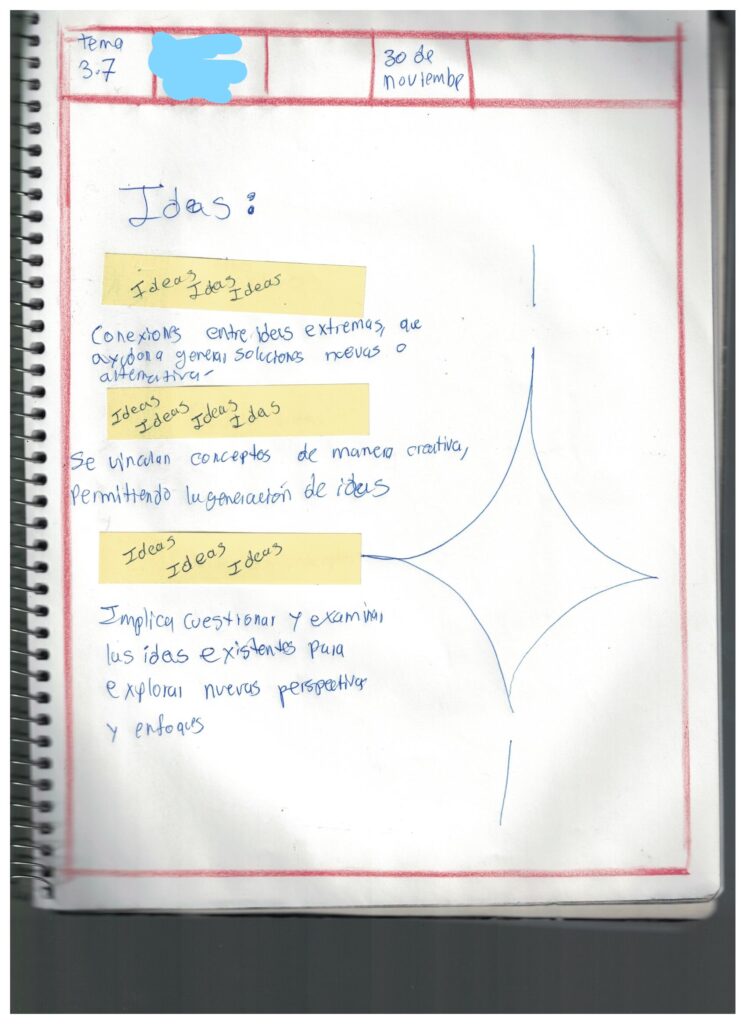 tema
3.7
30 de
noviembre
Ideas:
Ideas Idas Ideas
Conexiones entre ideas extremas, que
ayudan a generar soluciones nuevas o
alternativa-
Ideas Ideas Ideas Idas
Se vinculan conceptos de manera creativa,
Permittiendo la generación de ideas
Ideas Ideas Ideas
Implica cuestionar y examinar
las ideas existentes para
explorar nuevas perspectivas
y enfoques